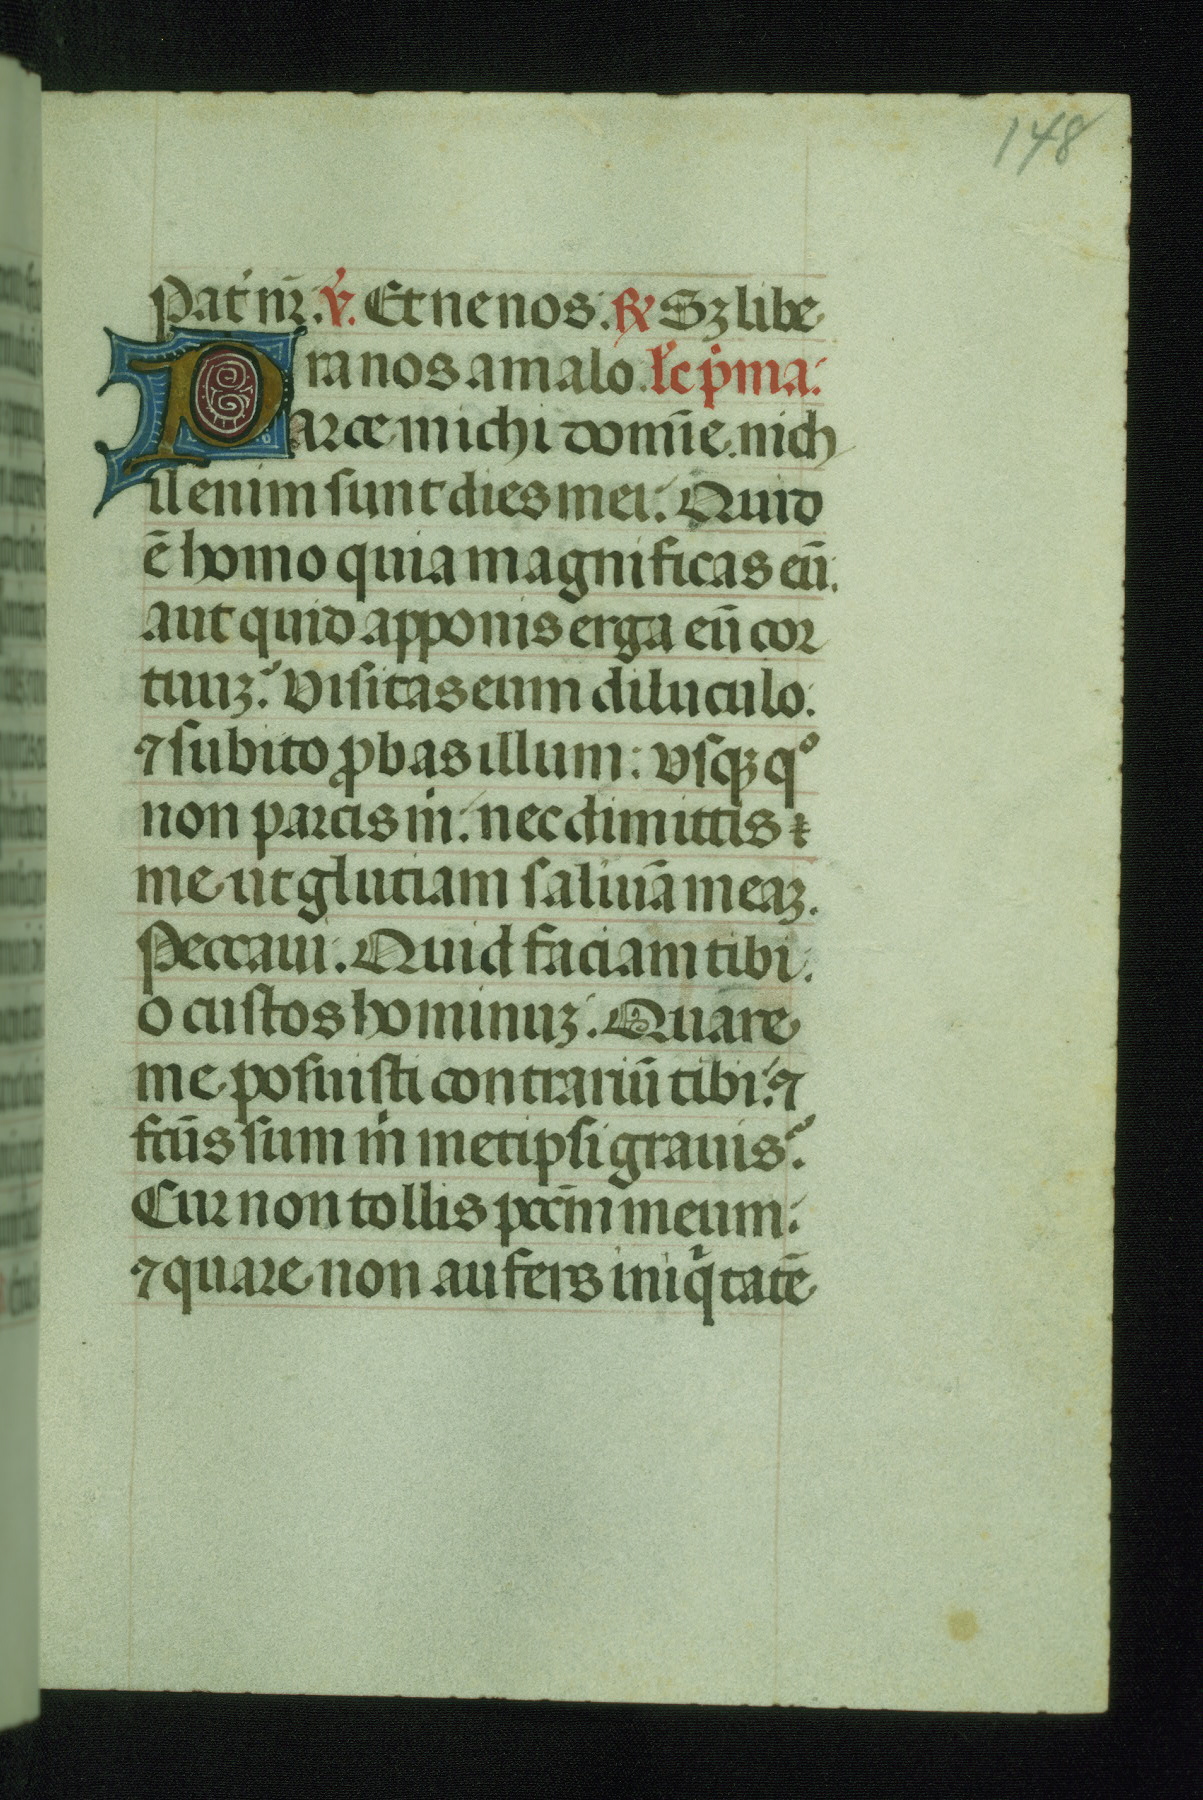 148
Pat̾ nr̄. v̾. Et ne nos. R̸ Sꝫ libe
ra nos a malo. lc̄ p̾ma:
Parce michi domīe. nich
il enim sunt dies mei: Quid
ē homo quia magnificas eū:
aut quid apponis erga eū cor
tuuꝫ: Visitas eum diluculo:
⁊ subito ꝓbas illum: vsqꝫ qͦ
non parcis m̾: nec dimittis
me ut glutiam saliuā meaꝫ.
Peccaui. Quid faciam tibi:
o custos hominuꝫ. Quare
me posuisti contrariū tibi: ⁊
fcūs sum m̾ metipsi grauis:
Cur non tollis pccm̄ meum:
⁊ quare non aufers iniqͥtatē